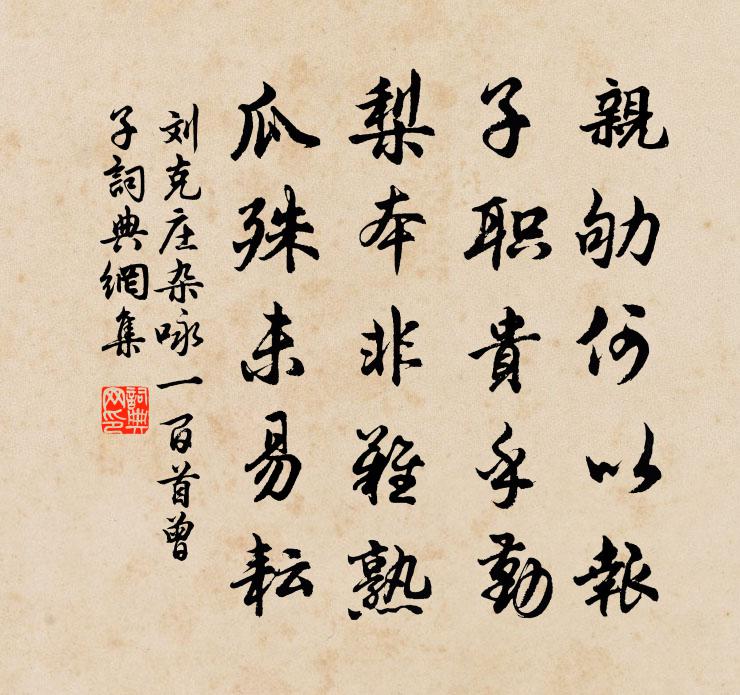 親劬何以報
子职貴乎勤
梨本非難熟
瓜殊未易耘
刘克庄杂咏一百首曾
子詞典網集
詞典网印